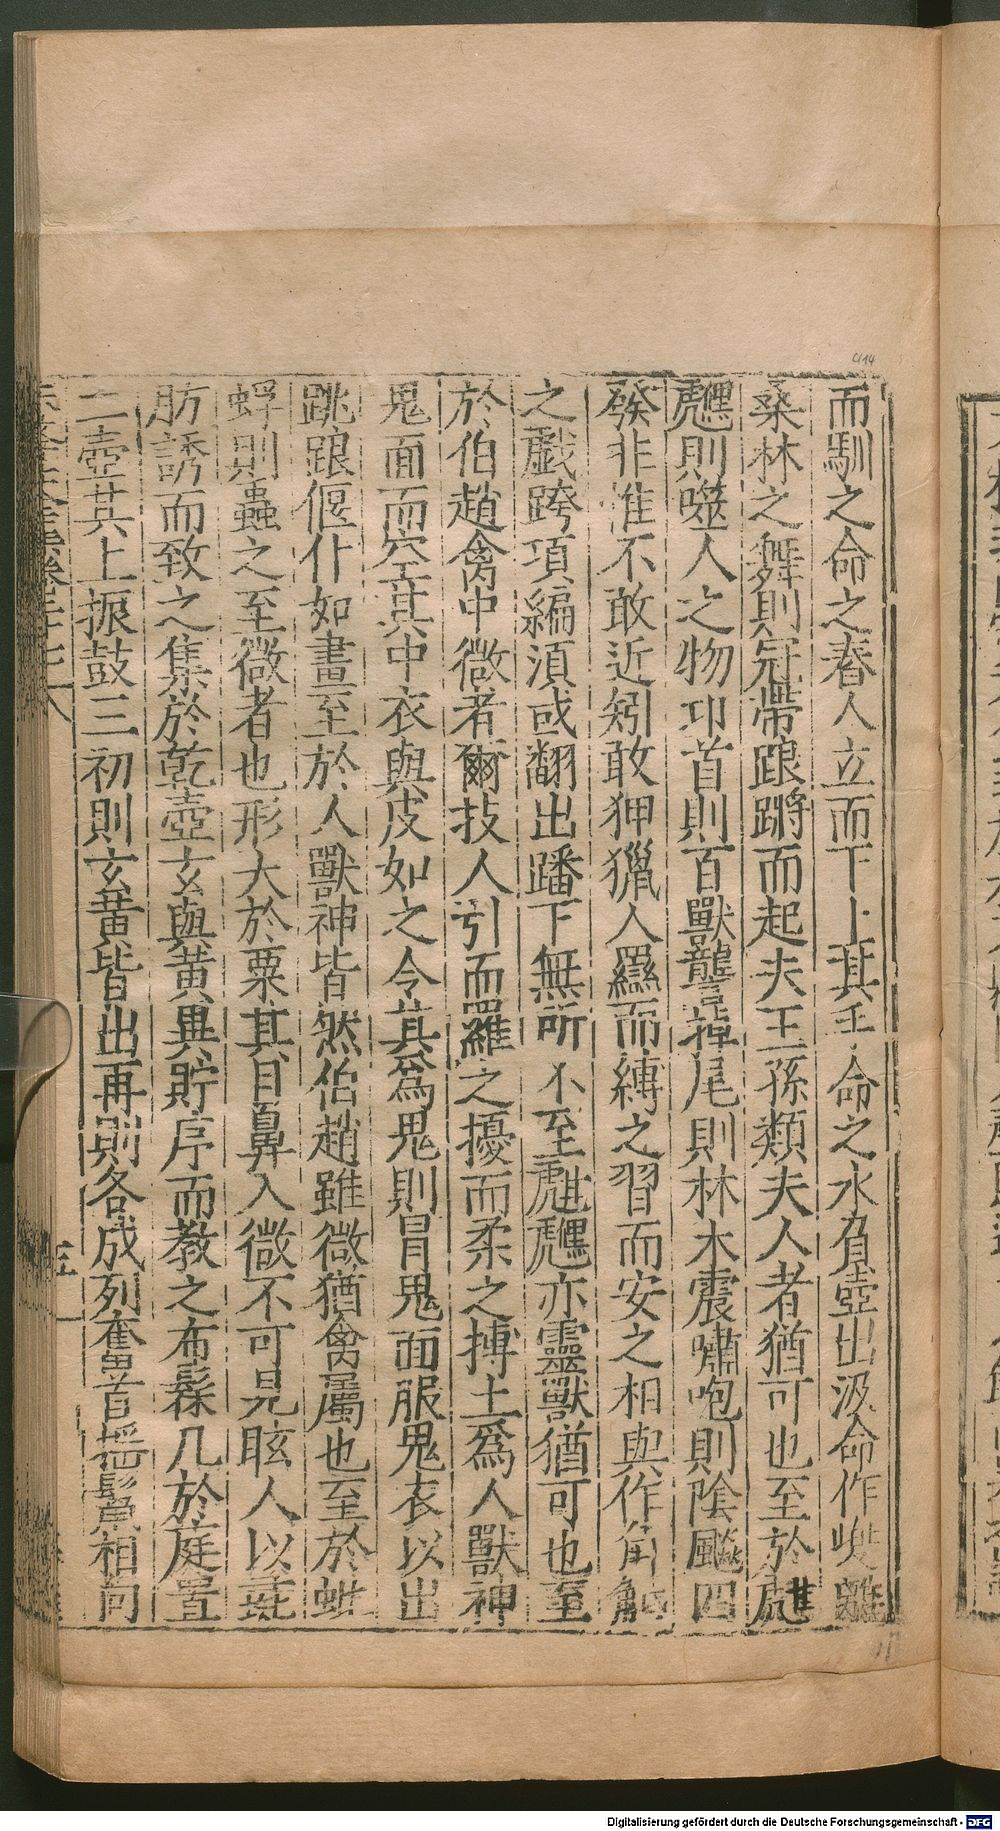 而馴之命之舂人立而下上其手命之水負壺出汲命作㕙離
桑林之舞則冠帶踉蹡而起夫王孫類夫人者猶可也至於虣
䰧則噬人之物叩首則百獸讋掉尾則林木震嘯咆則陰飈四
發非惟不敢近矧敢狎獵人羉而縛之習而安之相與作角觝
之戲跨項編湏或翻出蹯下無所不至虣䰧亦靈獸猶可也至
於伯趙禽中微者爾技人引而羅之擾而柔之摶土爲人獸神
鬼面而空其中衣與皮如之令其爲鬼則冒鬼面服鬼衣以出
跳踉偃仆如畫至於人獸神皆然伯趙雖微猶禽屬也至於蚍
蜉則蟲之至微者也形大於粟其目鼻入微不可見眩人以蚝
肪誘而致之集於乾壺玄與黃異貯序而教之布髹几於庭置
二壺其上振鼓三初則玄黃皆出再則各成列奮首揺鬣相向
五
Digitalisierung gefördert durch die Deutsche Forschungsgemeinschaft - DFG